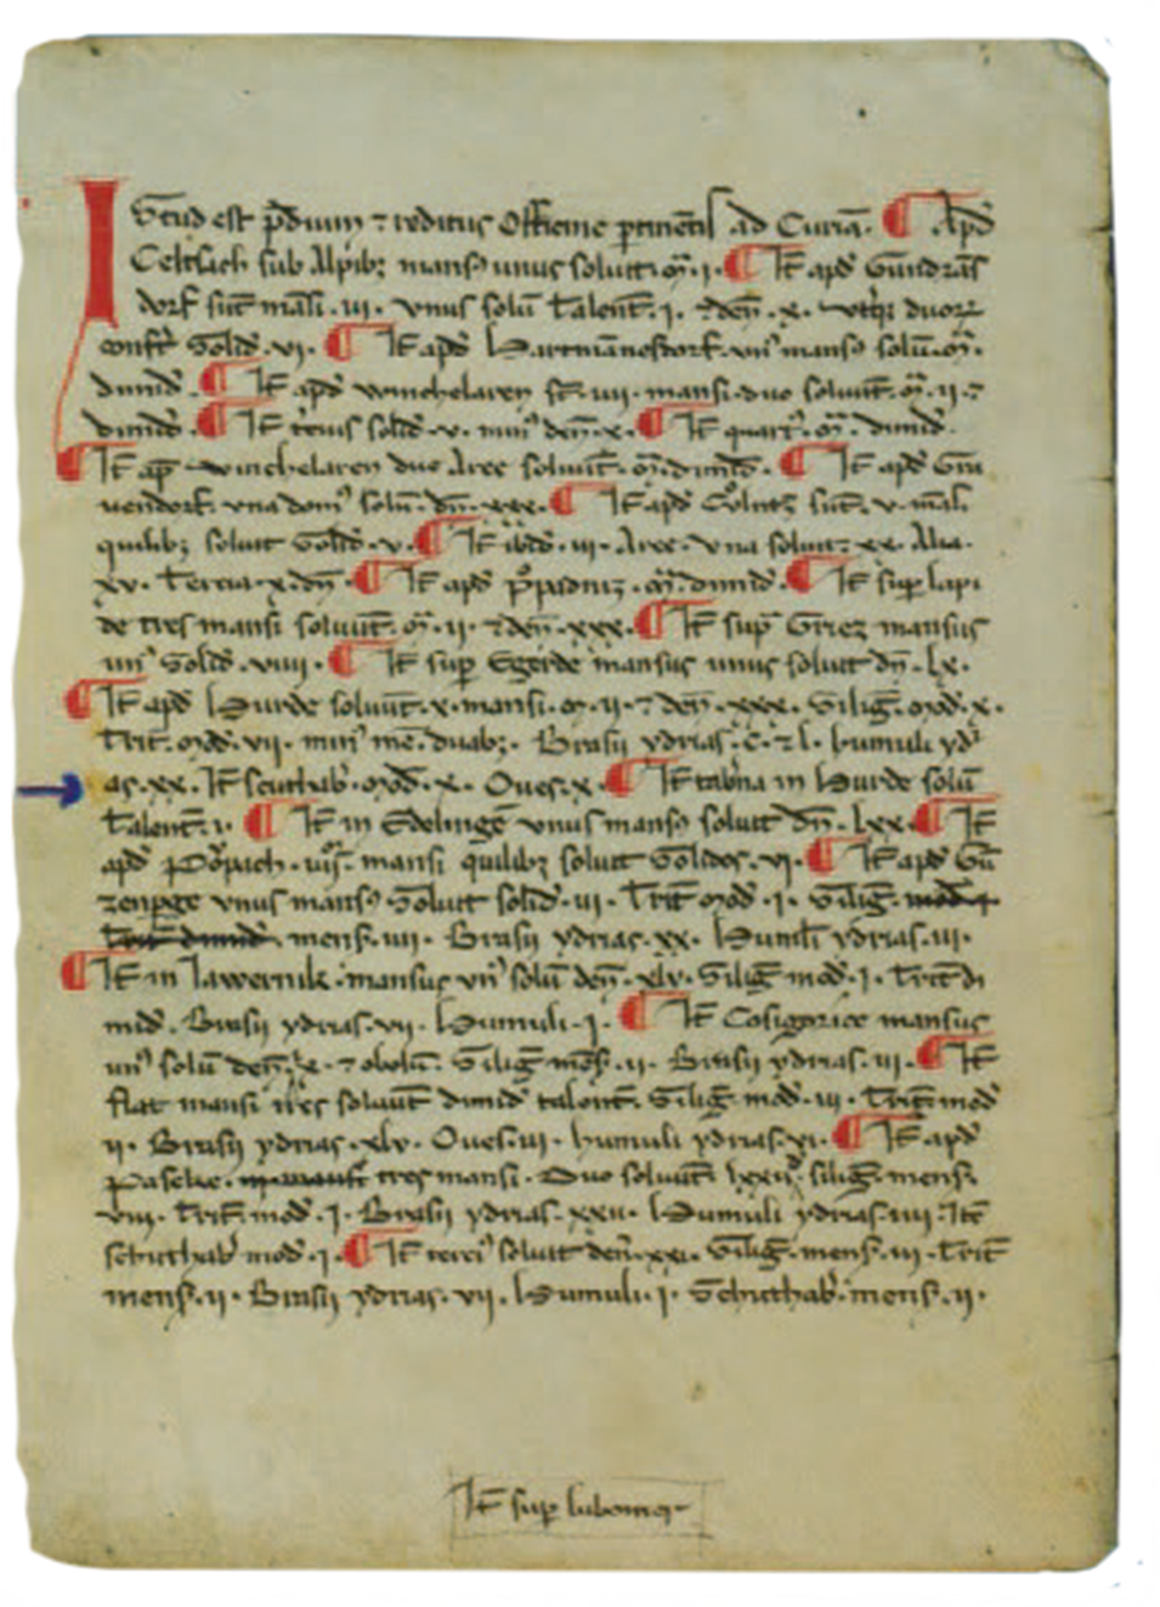 Istud est p̄dium ⁊ reditus Officine ꝑtinētes ad Curiā. ¶ Apđ
Celtsach sub Alpibꝫ mansꝰ unus soluit. m̄. i. ¶ It̄ apđ Gundrās
dorf sūt māsi. iii. vnus solū Talent̄. i. ⁊ deñ. x. duoꝝ
Soliđ. vi. ¶ It̄ apđ Hartmānesdorf. vnꝰ mansꝰ solū. m̄.
dimiđ. ¶ It̄ apđ winchelaren st̄. iiii. mansi. duo soluūt. m̄. ii. ⁊
dimiđ. ¶ It̄ t̄cius soliđ. v. minꝰ deñ. x. ¶ It̄ quartꝰ. m̄. dimiđ.
¶ It̄ ap̄ winchelaren due Aree soluūt. m̄. dimiđ. ¶ It̄ apđ Gru
uendorf. vna domꝰ solū. dn̄. xxx. ¶ It̄ apđ sunt̄. v. māsi.
quilibꝫ soluit Soliđ. v. ¶ It̄ ibiđ. iii. Aree. Vna soluit. xx. Alia.
xv. Tercia. x. dn̄. ¶ It̄ apđ m̄. dimiđ. ¶ It̄ suꝑ lapi
de tres mansi soluūt. m̄. ii. ⁊ deñ. xxx. ¶ It̄ sup̄ Griez mansus
unꝰ Soliđ. viiii. ¶ It̄ suꝑ Egerde mansus unus soluit dn̄. lx.
¶ It̄ apđ Hurde soluūt. x. mansi. m̄. ii. ⁊ deñ. xxx. Siliḡ. mođ. x.
Trit̄. mođ. vii. minꝰ mē. duabꝫ. Brasii ydrias. c. ⁊ l. humuli ydri
as. xx. It̄ scuthab̄. mođ. x. Oues. x. ¶ It̄ tab̄na in Hurde solū
Talent̄. i. ¶ It̄ in Edelingē vnus mansꝰ soluit dn̄. lxx. ¶ It̄
apđ mansi quilibꝫ soluit Solidos. vi. ¶ It̄ apđ Gū
zenꝑge vnus mansꝰ Soluit soliđ. iii. Trit̄ mođ. i. Siliḡ. mođ. i
Trit̄ dimiđ. mens̄. iiii. Brasii ydrias. xx. Humuli ydrias. iii.
¶ It̄ in Jawernik. mansus vnꝰ solū deñ. xlv. Siliḡ mođ. i. Trit̄ di
miđ. Brasii ydrias. vii. Humuli. i. ¶ It̄ Cosigorice mansus
unꝰ solū deñ. lx. ⁊ obolū. Siliḡ mēs̄. ii. Brasii ydrias. iii. ¶ It̄
flat mansi tres soluūt dimiđ talent̄. Siliḡ. mođ. iii. Trit̄. mođ
ii. Brasii ydrias. xlv. Oues. iii. humuli ydrias. vi. ¶ It̄ apđ
Paselre. tres mansi. Duo soluūt. lxxii. siliḡ. mens̄.
viii. Trit̄. mođ. i. Brasii ydrias. xxii. Humuli ydrias. iiii. Itē
schithab̄ mođ. i. ¶ It̄ terciꝰ soluit deñ. xxi. Siliḡ. mens̄. iii. Trit̄
mens̄. ii. Brasii ydrias. vii. Humuli. i. Schithab̄. mens̄. ii.
It̄ suꝑ